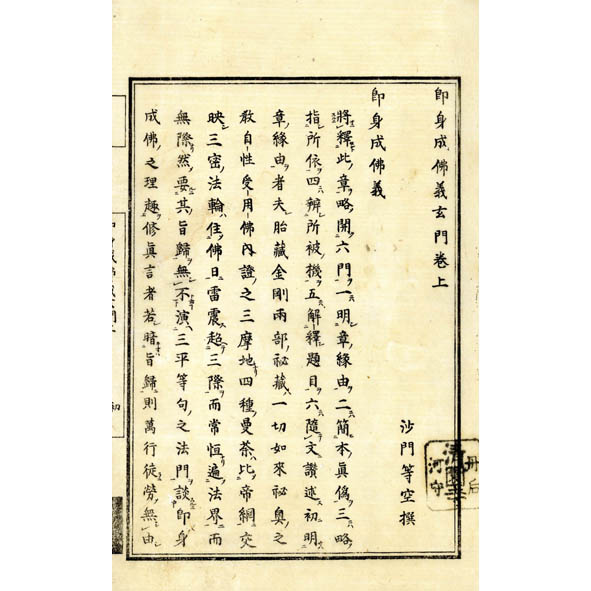 即身成佛義玄門卷上
沙門等空撰
即身成佛義
將釋此章略開六門一明章緣由二簡本眞僞三略
指所依四辨所被機五解釋題目六隨文讚述初明
章緣由者夫胎藏金剛兩部祕藏一切如來祕奧之
敎自性受用佛內證之三摩地四種曼荼比帝網交
映三密法輪住佛日雷震超三際而常恒遍法界而
無際然要其旨歸無不演三平等句之法門談即身
成佛之理趣修眞言者若暗旨歸則萬行徒勞無由